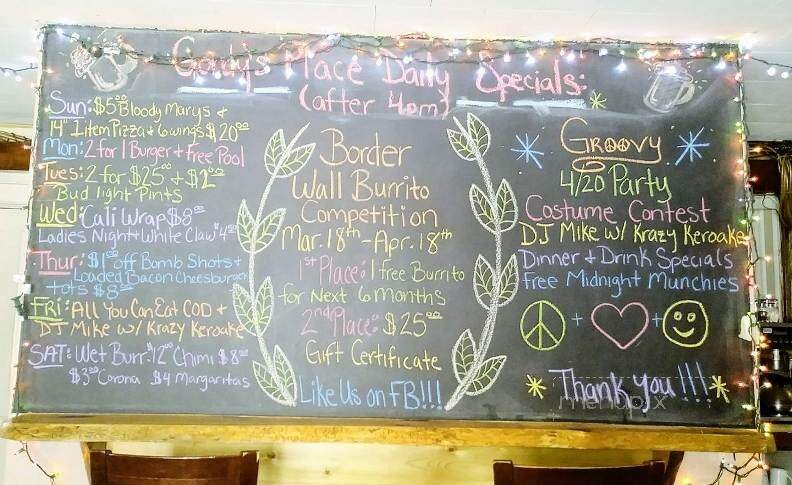 Gordy's Place Daily Specials:
(after 4pm)
Sun: $5⁰⁰ Bloody Marys +
14" 1 item Pizza + 6 wings $20⁰⁰
Mon: 2 for 1 Burger + Free Pool
Tues: 2 for $25⁰⁰ + $2⁰⁰
Bud light Pints
Wed: Cali Wrap $8⁰⁰
Ladies Night + White Claw $4⁰⁰
Thur: $1⁰⁰ off Bomb Shots +
Loaded Bacon Cheesburger
tots $8⁰⁰
Fri: All You Can Eat COD +
DJ Mike w/ Krazy Keroake
SAT: Wet Burr. $12⁰⁰ Chimi $8⁰⁰
$3⁰⁰ Corona $4 Margaritas
Border
Wall Burrito
Competition
Mar. 18th - Apr. 18th
1st Place: 1 free Burrito
for Next 6 months
2nd Place: $25⁰⁰
Gift Certificate
Like Us on FB!!!
Groovy
4/20 Party
Costume Contest
DJ Mike w/ Krazy Keroake
Dinner + Drink Specials
Free Midnight Munchies
+ +
Thank you!!!
menupix